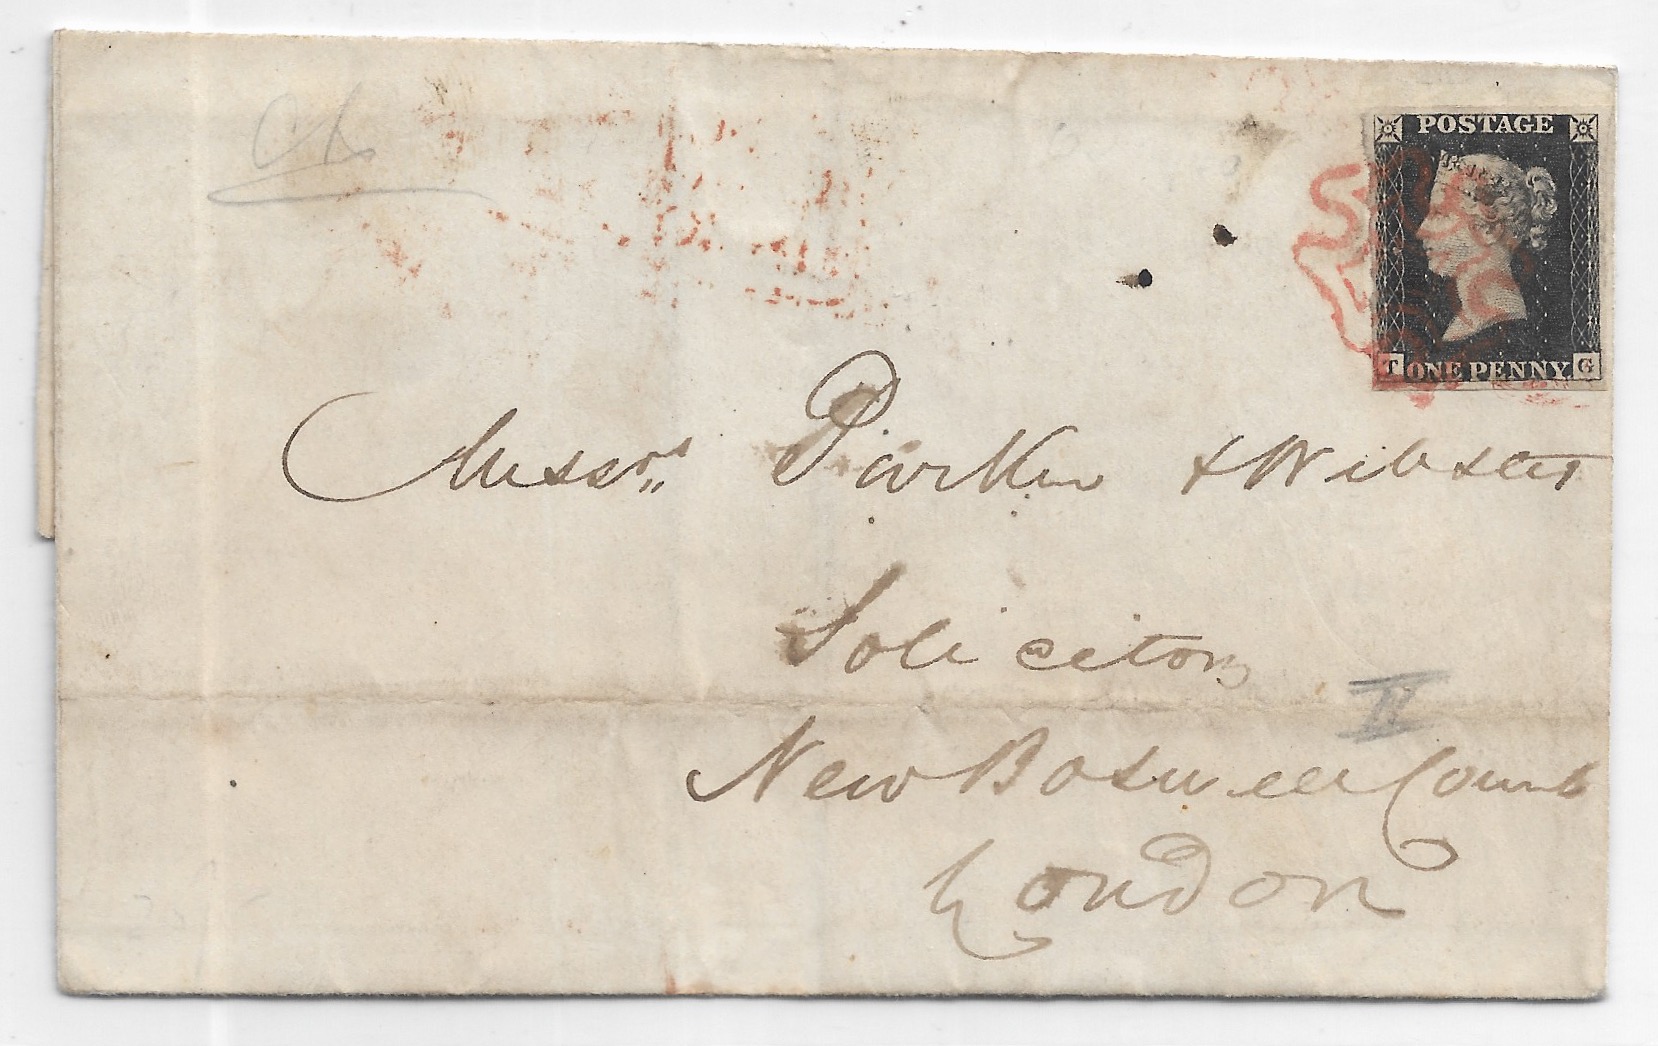 POSTAGE
T ONE PENNY G
Messrs Parker & Webster
Solicitors
New Boswell Court
London